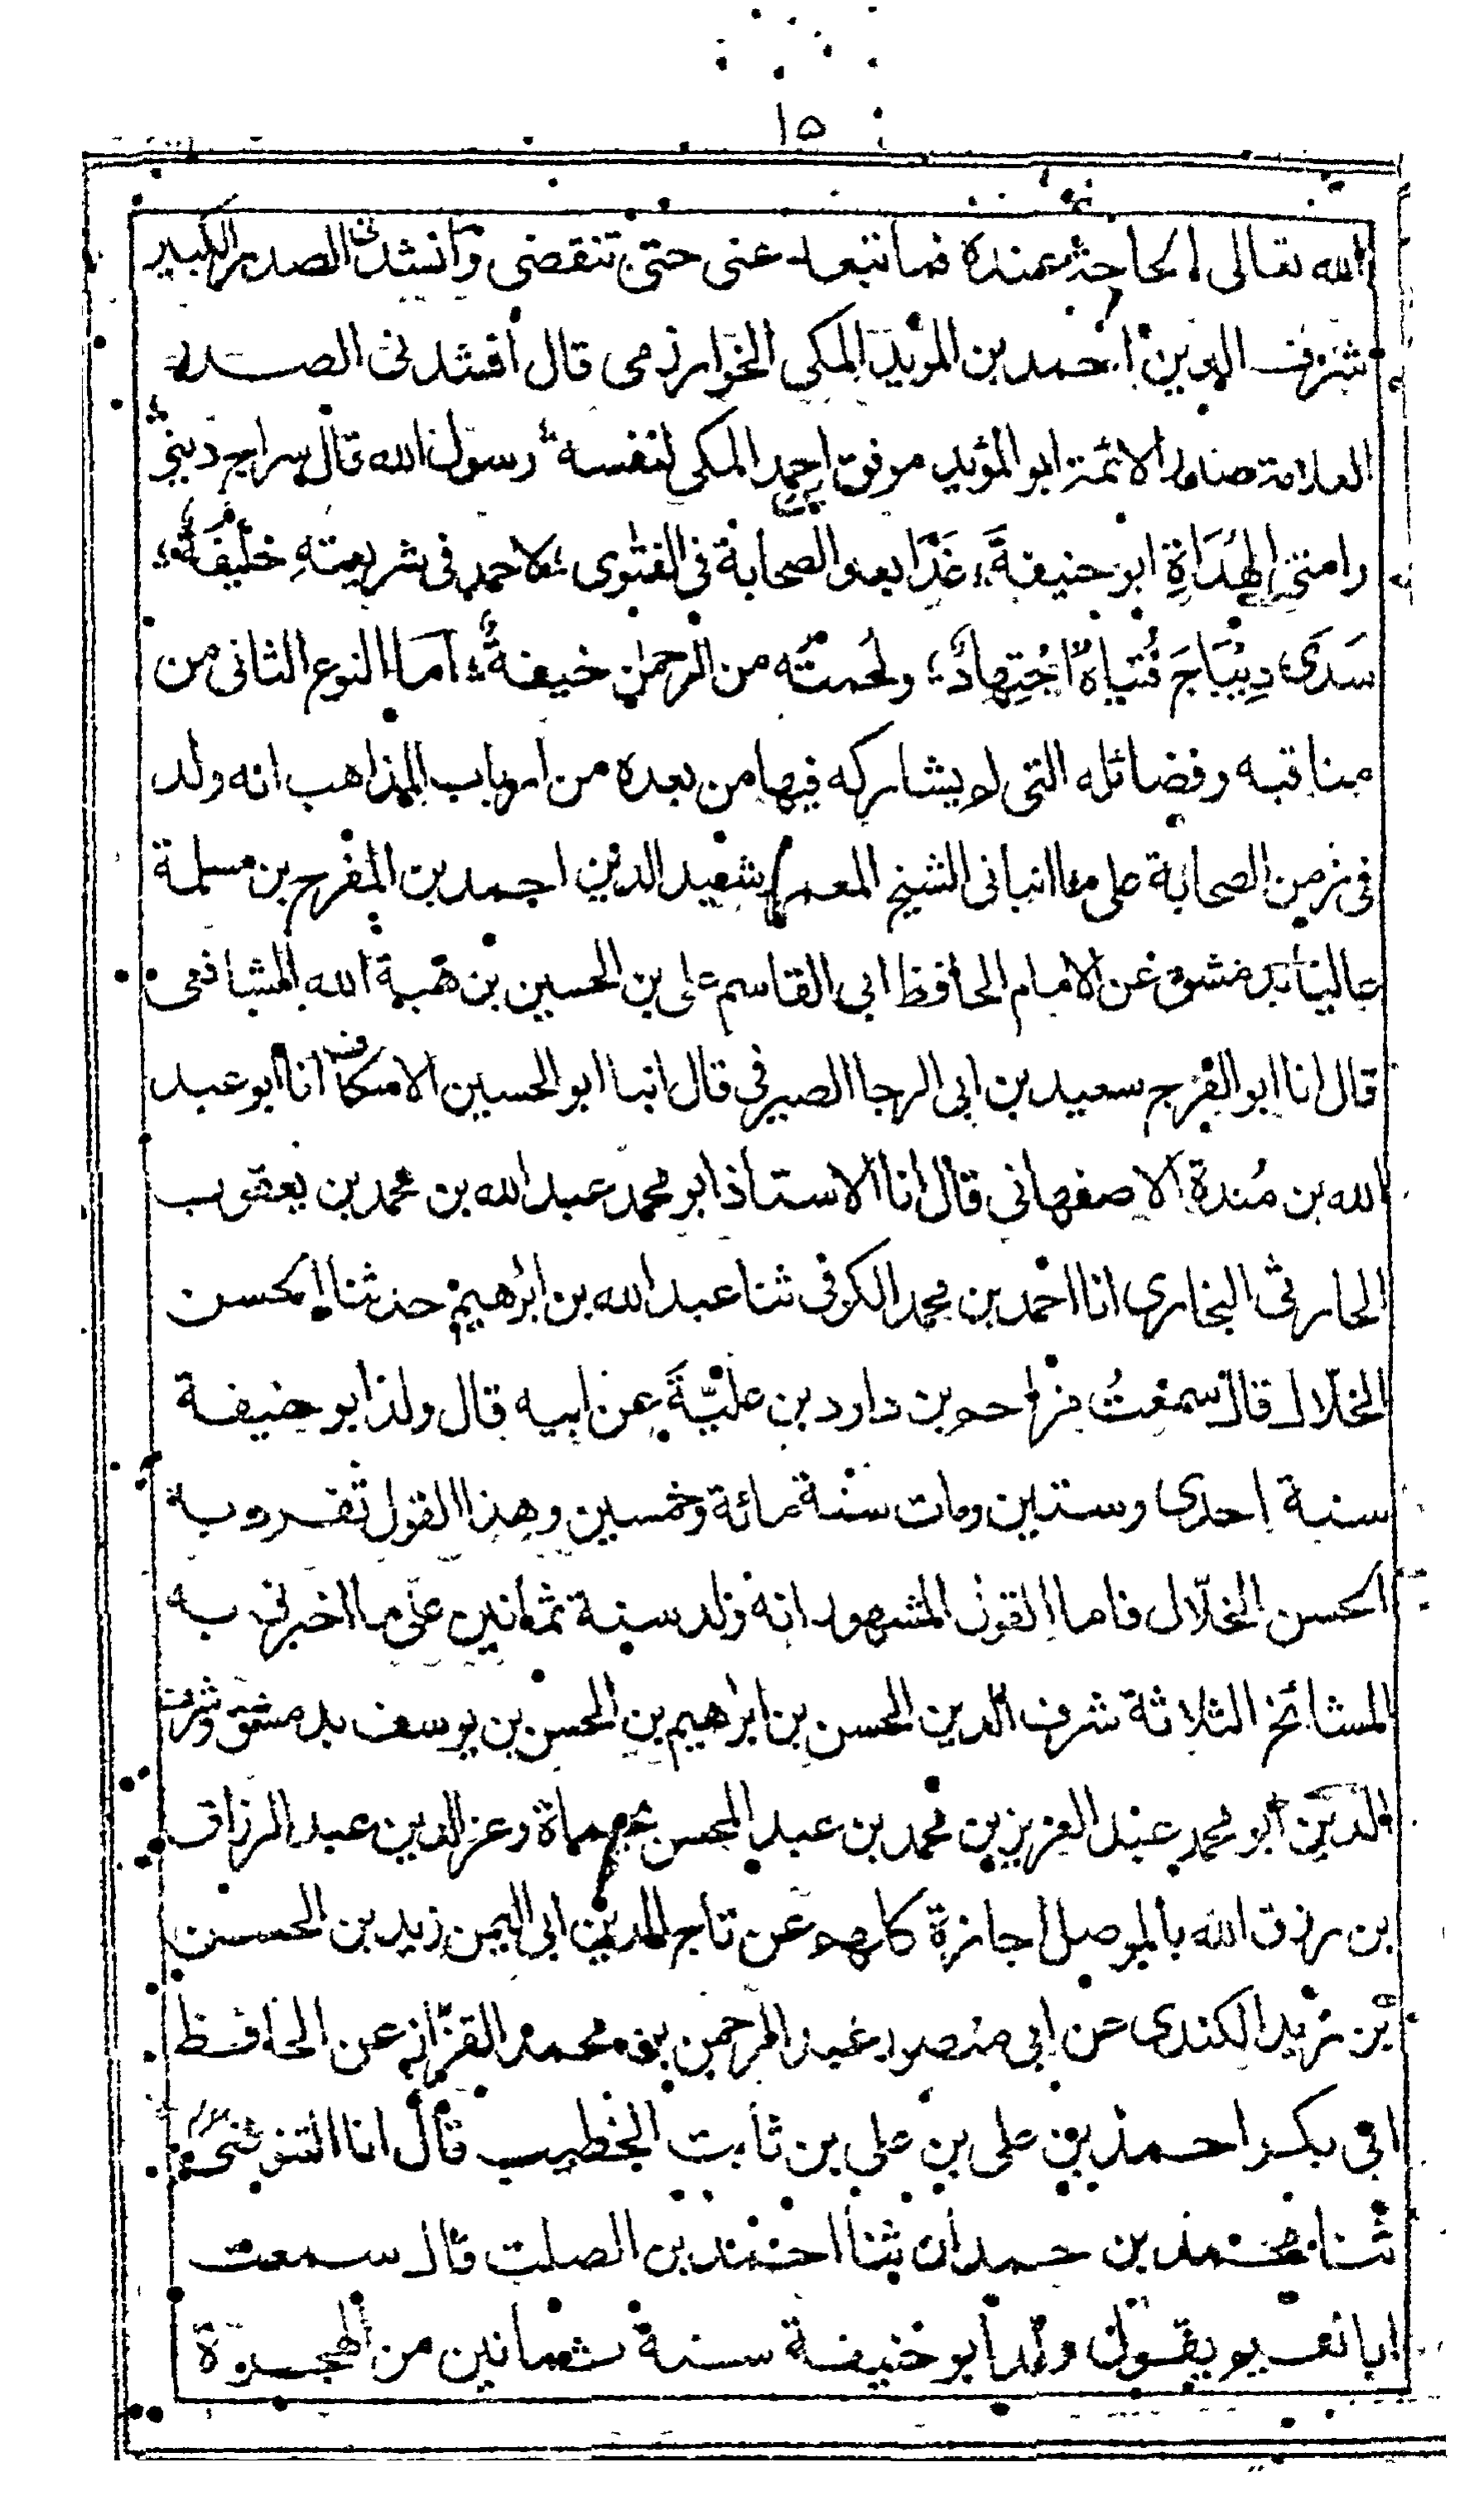 ١٥
الله تعالى لحاجة عنده فما تبعد عنى حتى تنقضى وانشدنى الصدر الكبير
شرف الدين احمد بن المويد المكى الخوارزمى قال انشدنى الصدر
العلامة صدر الائمة ابو المؤيد موفق بن احمد المكى لنفسه رسول الله قال سراج دينى
وامتى الهُدَاةِ ابو حنيفةَ غَدَا بعد الصحابة فى الفتوى لاحمد فى شريعتهِ خليفةٌ
سَدَى دِيْبَاجَ فُتياهُ اجْتِهادٌ ولُحمتُه من الرحمٰن خيفةٌ اما النوع الثانى من
مناقبه وفضائله التى لو يشاركه فيها من بعده من ارباب المذاهب انه ولد
فى زمن الصحابة على ما انبانى الشيخ المعمر شعيد الدين احمد بن المفرح بن مسلمة
عاليا بدمشق عن الامام الحافظ ابى القاسم على بن الحسين بن هبة الله الشافعى
قال انا ابو الفرج سعيد بن ابى الرجا الصيرفى قال انبا ابو الحسين الاسكاف انا ابو عبد
الله بن مُندة الاصفهانى قال انا الاستاذ ابو محمد عبد الله بن محمد بن يعقوب
الحارثى البخارى انا احمد بن محمد الكوفى ثنا عبد الله بن ابرهيم حدثنا الحسن
الخلّال قال سمعتُ مزاحم بن داود بن عليّةَ عن ابيه قال ولد ابو حنيفة
سنة احدى وستين ومات سنة مائة وخمسين وهذا القول تفرد به
الحسن الخلّال فاما القول المشهور انه ولد سنة ثمانين على ما اخبرنى به
المشائخ الثلاثة شرف الدين الحسن بن ابراهيم بن الحسن بن يوسف بدمشق وشرف
الدين ابو محمد عبد العزيز بن محمد بن عبد المحسن بحماة وعز الدين عبد الرزاق
بن رزق الله بالموصل اجازة كلهم عن تاج الدين ابى اليمن زيد بن الحسن
بن زيد الكندى عن ابى منصور عبد الرحمن بن محمد القزاز عن الحافظ
ابى بكر احمد بن على بن على بن ثابت الخطيب قال انا التنوخى
ثنا محمد بن حمدان ثنا احمد بن الصلت قال سمعت
ابا نعيم يقول ولد ابو حنيفة سنة ثمانين من الهجرة